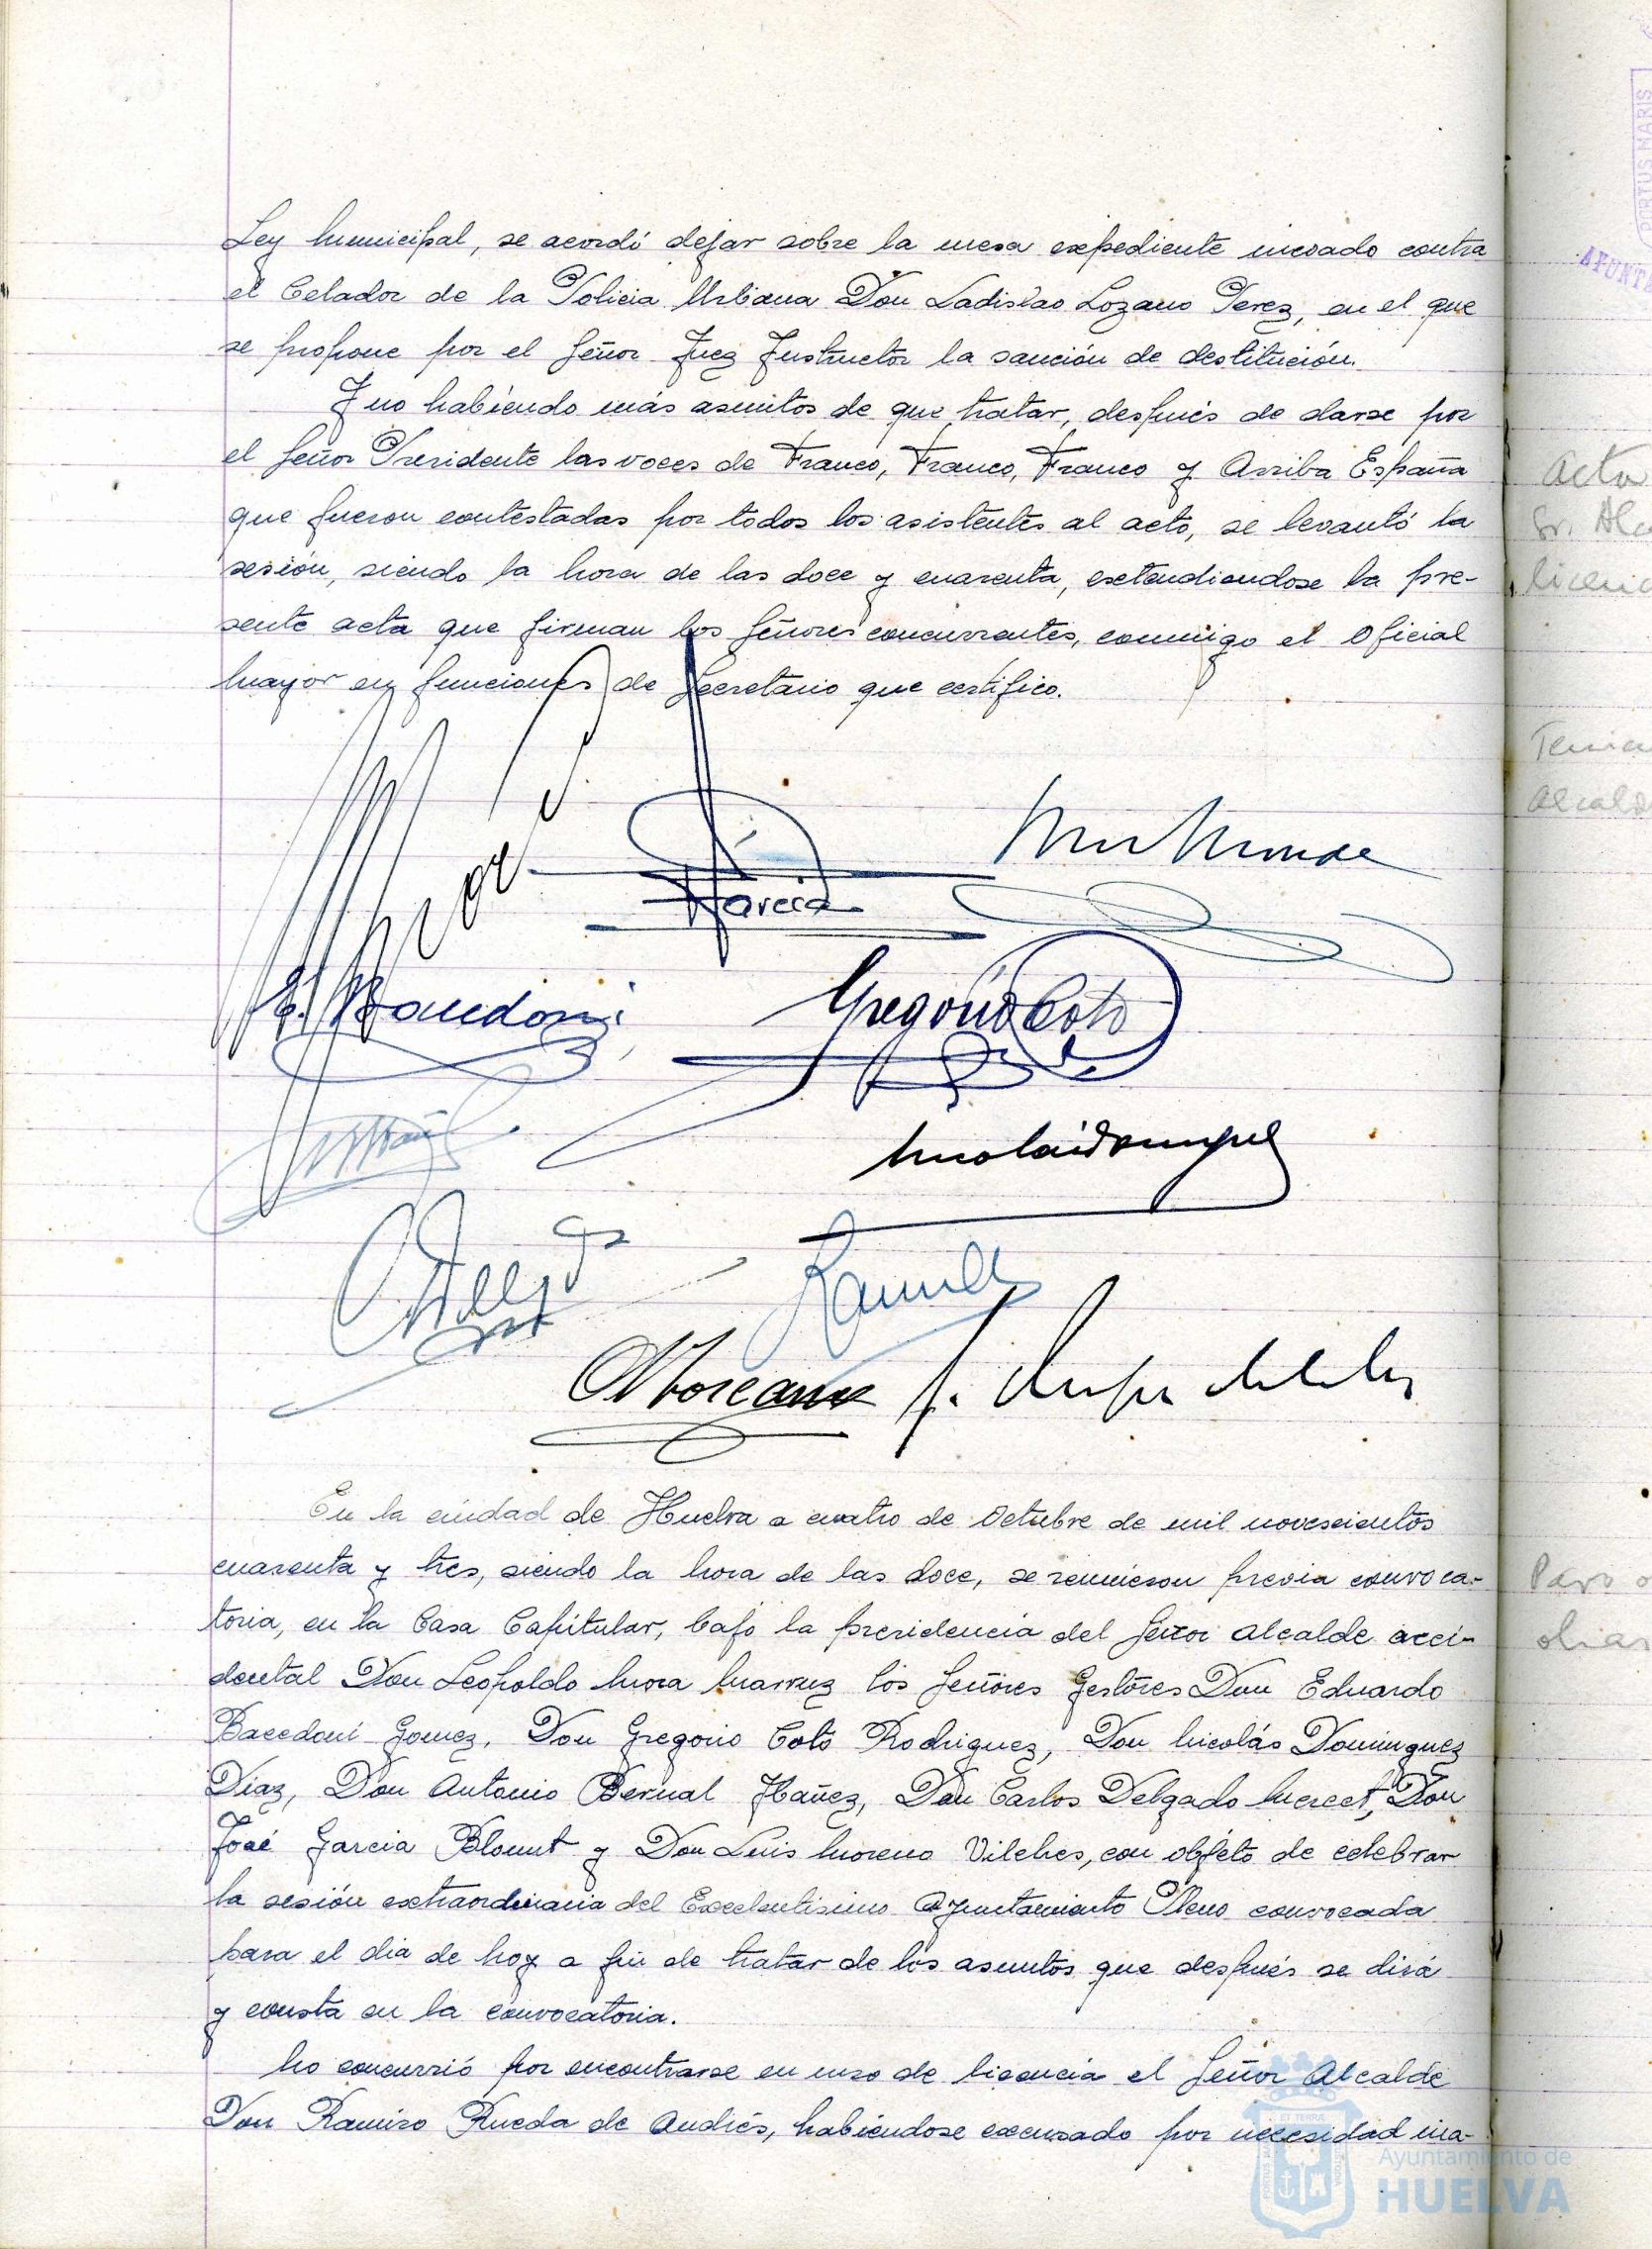 Ley Municipal, se acordó dejar sobre la mesa expediente incoado contra
el Celador de la Policia Urbana Don Ladislao Lozano Perez, en el que
se propone por el Señor Juez Instructor la sanción de destitución.
Y no habiendo más asuntos de que tratar, después de darse por
el Señor Presidente las voces de Franco, Franco, Franco y Arriba España
que fueron contestadas por todos los asistentes al acto, se levantó la
sesión, siendo la hora de las doce y cuarenta, extendiendose la pre-
sente acta que firman los Señores concurrentes, conmigo el Oficial
Mayor en funciones de Secretario que certifico.
Garcia
E. Bacedoni
Gregorio Coto
Nicolás Domínguez
En la ciudad de Huelva a cuatro de Octubre de mil novescientos
cuarenta y tres, siendo la hora de las doce, se reunieron previa convoca-
toria, en la Casa Capitular, bajo la presidencia del Señor Alcalde acci-
dental Don Leopoldo Mora los Señores Gestores Don Eduardo
Bacedoni Gomez, Don Gregorio Coto Rodriguez, Don Nicolás Dominguez
Diaz, Don Antonio Bernal Ibañez, Don Carlos Delgado Don
José Garcia y Don Luis Moreno Vilches, con objeto de celebrar
la sesión extraordinaria del Excelentisimo Ayuntamiento Pleno convocada
para el dia de hoy a fin de tratar de los asuntos que después se dirá
y consta en la convocatoria.
No concurrió por encontrarse en uso de licencia el Señor Alcalde
Don Ramiro Rueda de Andrés, habiendose excusado por necesidad ina-
Acta
Sr. Alc
licenc
Tenien
Alcald
Paro o
obras
Ayuntamiento de
HUELVA